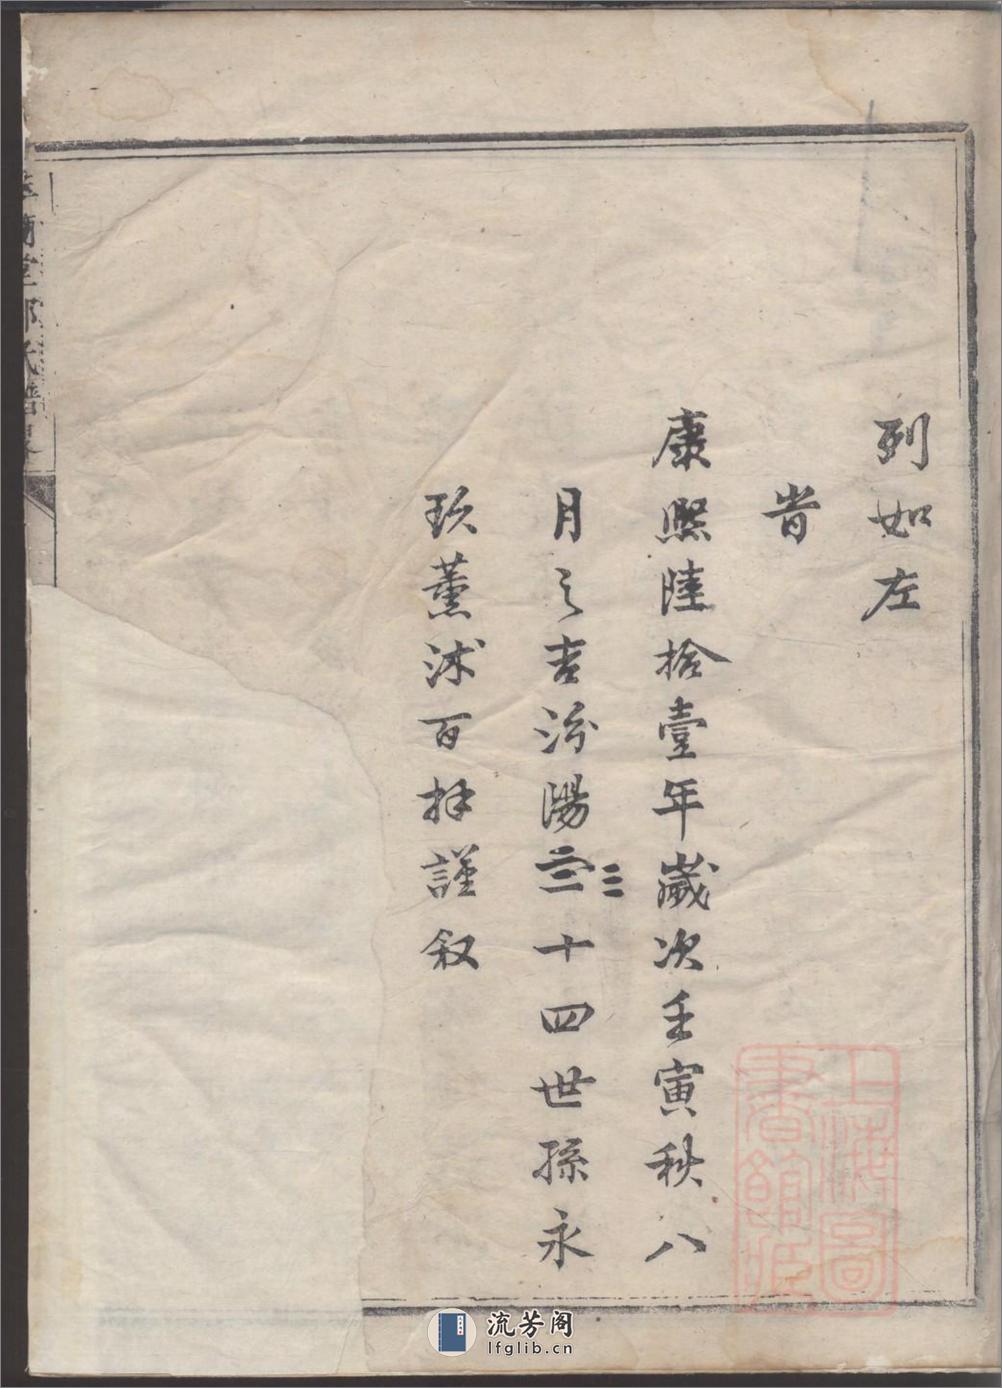 列如左
旹
康熙陸拾壹年歲次壬寅秋八
月之吉汾陽三十四世孫永
玖薰沭百拜謹叙
堂郭氏譜
上海圖
書館藏
流芳阁
lfglib.cn